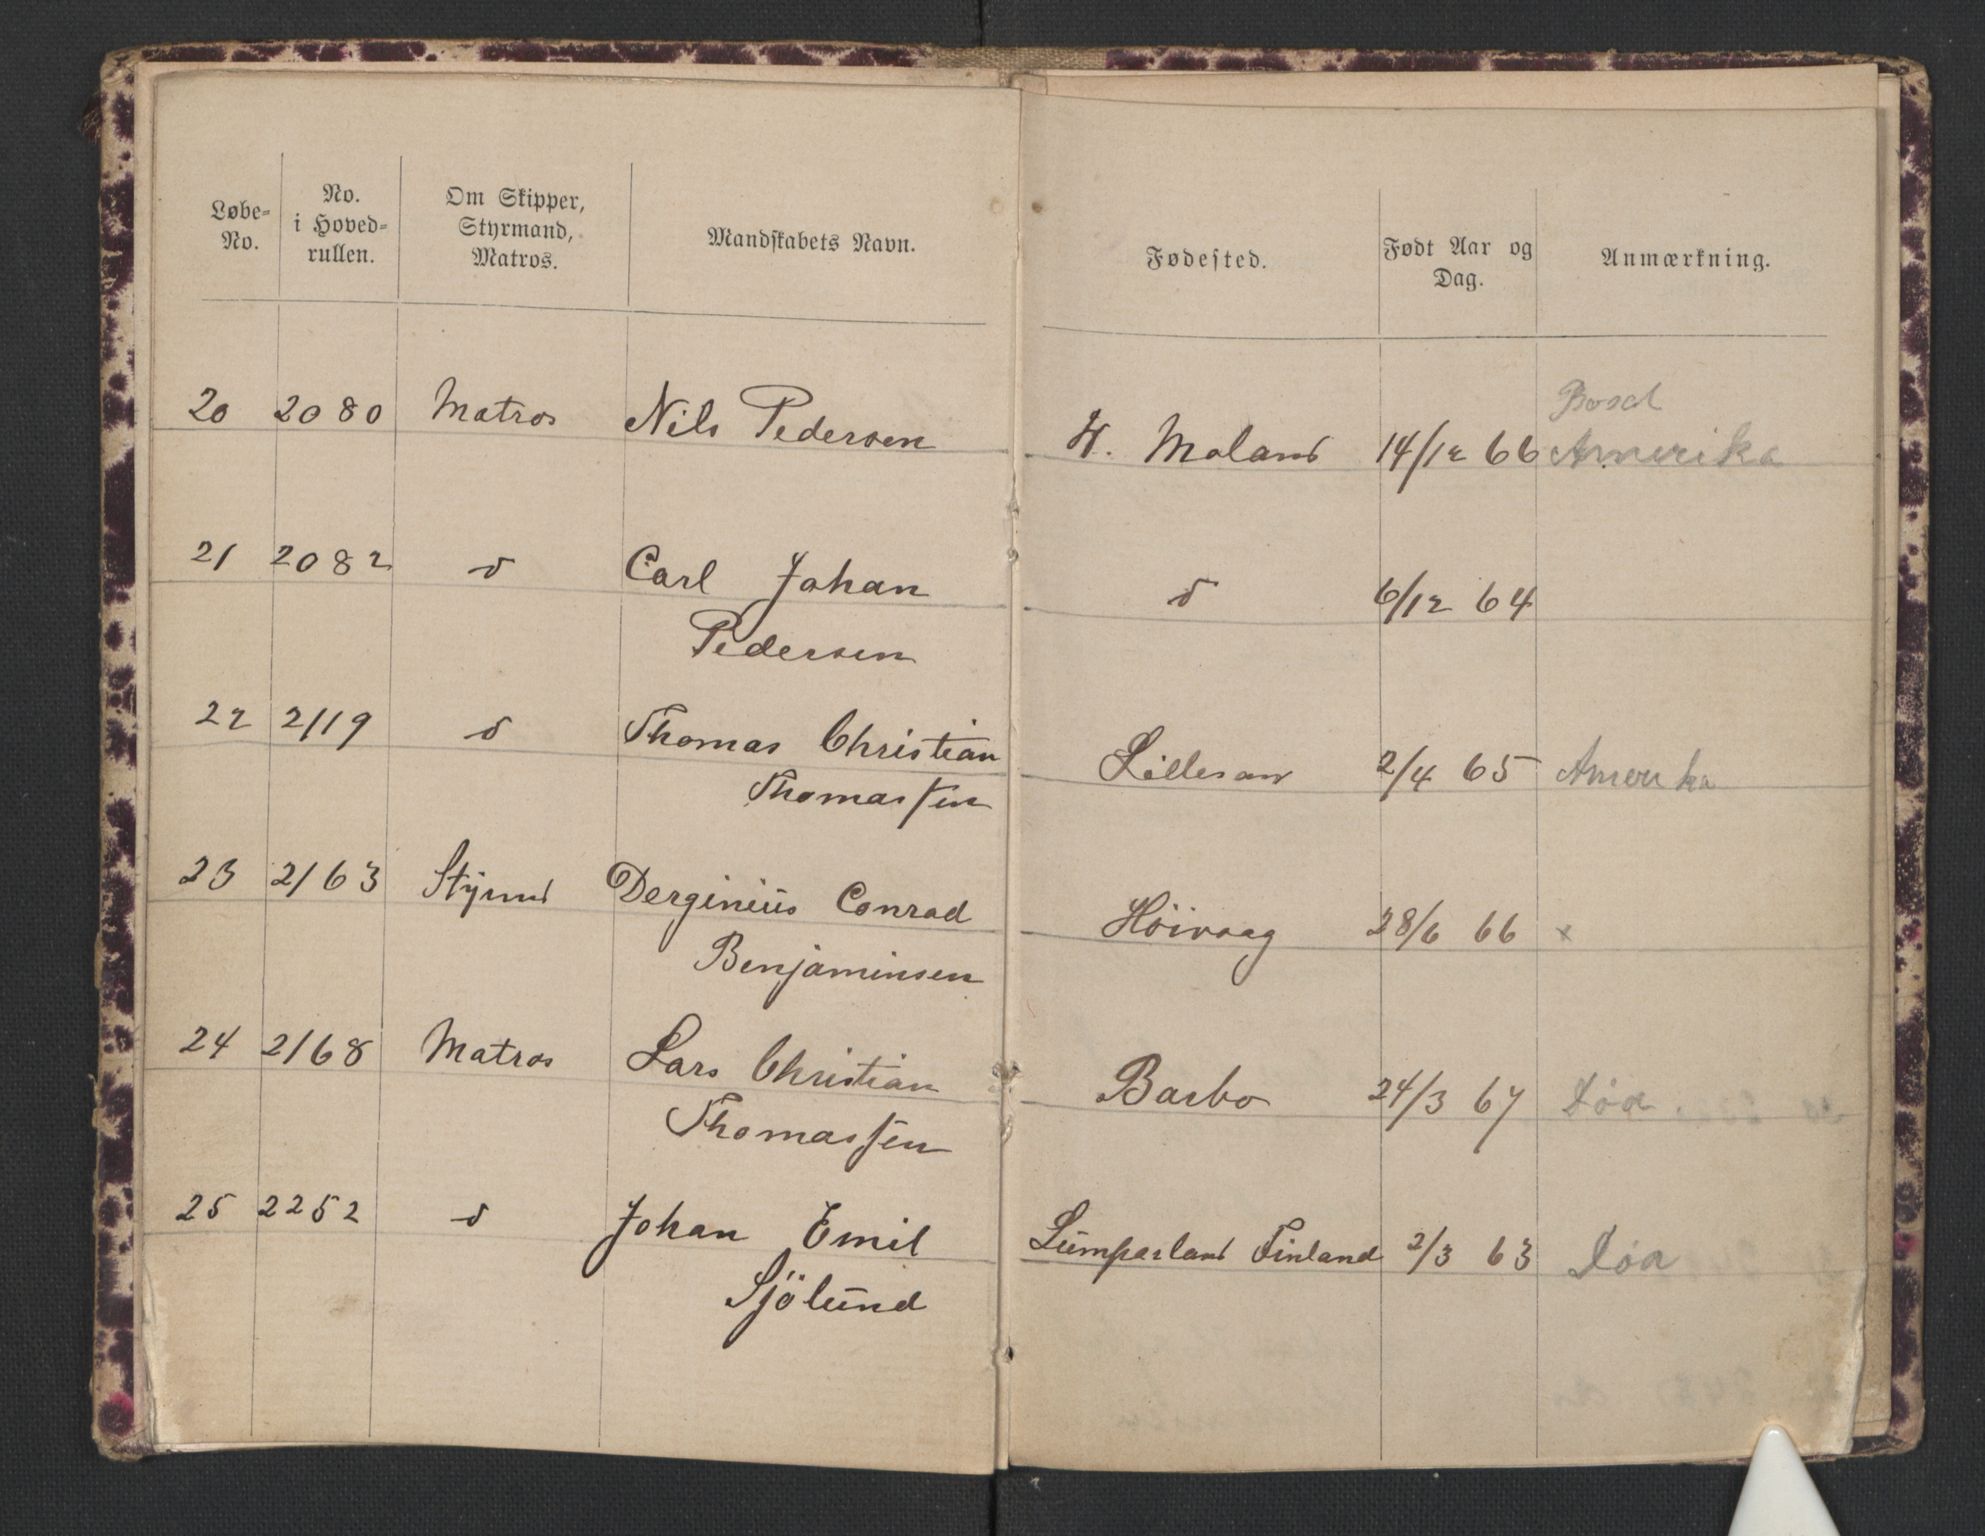 Løbe-No. No. i Hoved-rullen. Om Skipper, Styrmand, Matros. Mandskabets Navn. Fødested. Født Aar og Dag. Anmærkning.
20 2080 Matros Nils Pedersen V. Moland 14/12 66 Amerika
21 2082 d Carl Johan d 6/12 64
Pedersen
22 2119 d Thomas Christian Lillesand 2/4 65 Amerika
Thomassen
23 2163 Styrmd Derginius Conrad Höivaag 28/6 66 x
Benjaminsen
24 2168 Matros Lars Christian Barbo 24/3 67 Död
Thomassen
25 2252 d Johan Emil Lumparland Finland 2/3 63 Död
Sjölund